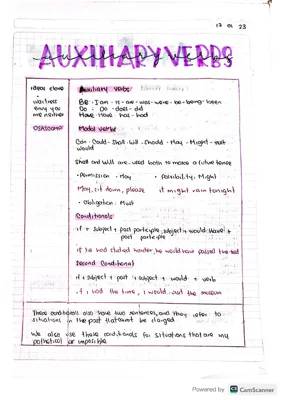 17 01 23
AUXILIARY VERBS
Ideas clave
Auxiliary verbs
Be - I am - is - are - was - were - be - being - been
Do : Do - does - did
Have: Have has - had
Modal verbs
Can - Could - Shall - Will - Should - May - Might - must
would
Shall and Will are used both to make a future tense
• Permission - May
• Posibility - Might
May, sit down, please
it might rain tonight
• Obligation - Must
Conditionals
if + subject + past participle, subject + would + have +
past participle
if he had studied harder, he would have passed the test
Second Conditional
if + subject + past , subject + would + verb
if I had the time, I would the museum
These conditionals also have two sentences, and they refer to
situations in the past that cannot be changed
We also use these conditionals for situations that are
hypothetical or impossible
Powered by CS CamScanner